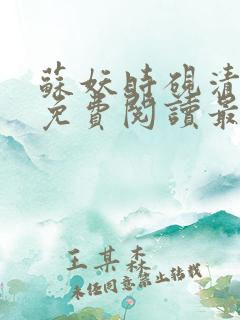 蘇妖時硯清
免費閱讀最
王某森
未任同意禁止转载